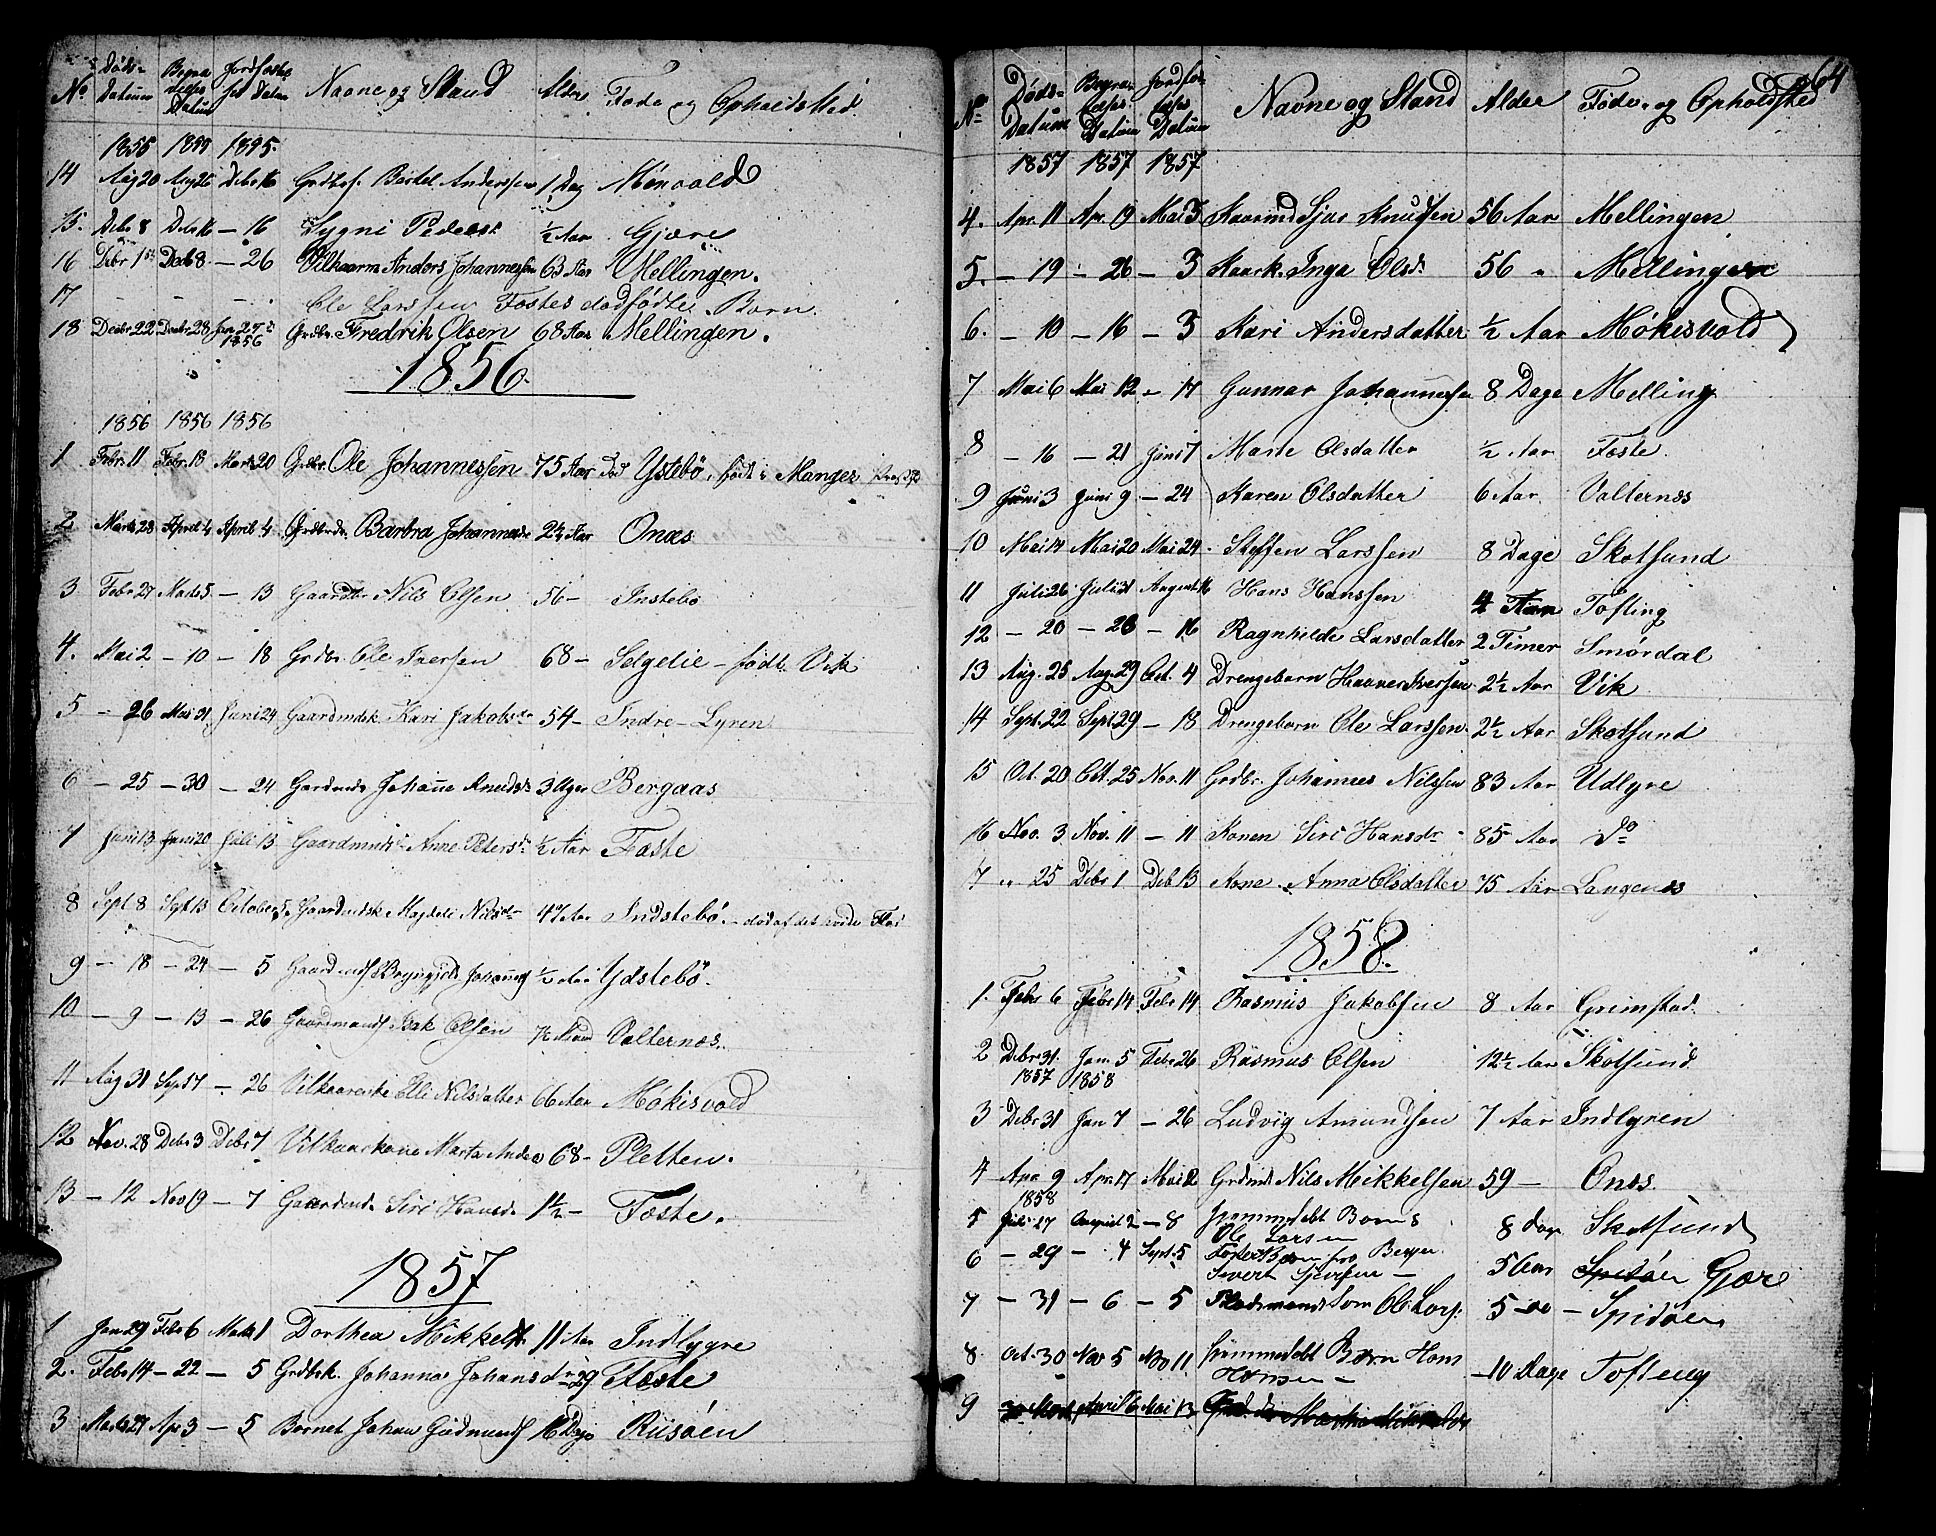 No Døds- Datum Begra- velses Datum Jordfæstel- ses Datum Navne og Stand Alder Føde og Opholdsted.
1855 1855 1895.
14 Aug 20 Aug 26 Debr 16 Grdbrf. Bertel Anderssen 1 Dag Mønvold
15. Debr 8 Debr 16 — 16 Sygni Pedersd. ½ Aar Gjære
16 Debr 1st Decb 8. — 26 Vilkaarm Anders Johannessen 63 Aar Mellingen.
17 - - - Ole Larssen Fostes dødfødte Barn.
18 Decbr 22 Decbr 28 Jan 27de 1856 Grdbr. Fredrik Olsen 68 Aar Mellingen.
1856.
1856 1856 1856
1 Febr. 11 Febr. 18 Marts 20 Grdbr. Ole Johannessen 75 Aar Død Ystebö, født i Manger Præstgj
2 Marts 28 April 4 April 4 Grdbrd. Barbra Johannesd. 2½ Aar Onæs
3 Febr. 27 Marts 5 — 13 Gaardbr Nils Olsen 56 — Instebö
4. Mai 2 — 10 — 18 Grdbr. Ole Iversen 68 — Selgelie — født Vik
5 — 26 Mai 31 Juni 24 Gaardmdsk Kari Jakobsdr 54 — Indre-Lyren
6 — 25 — 30 — 24 Gardmds Johanne Knudsd. 3 Uger Bergaas
7 Juni 13 Juni 20 Juli 13 Gaardmnds Anne Petersd. ½ Aar Fæste
8 Sept 8 Sept 13 October 5. Gaardmdsk Magdeli Nilsdr 47 Aar Indstebö. — död af det hvide Flod
9 — 18 — 24 — 5 Gaardmdsd Brynjild Johannes ½ Aar Ydstebö.
10 — 9 — 13 — 26 Gaardmands Isak Olsen Valternæs.
11 Aug 31 Sept 7 — 26 Vilkaarenke Elli Nilsdatter 66 Aar Møkisvold
12 Nov. 28 Debr 3 Debr 7 Vilkaarkone Marta Anders 68 — Pletten.
13 — 12 Nov 19 — 7 Gaardmd. Siri Hansd. 1½ — Fæste.
1857
1 Jan 29 Febr 6 Marts 1 Dorthea Mikkelsd. 11 Aar Indlygre
2. Febr 14 — 22 — 5 Grdbsk. Johanna Johansdr 29 Fæste
3 Marts 27 Apr 3 — 5 Barnet Johan Gudmunds 16 Dage Risöen
64
No Døds- Datum Begra- velses Datum Jordfæs- telses Datum Navne og Stand Alder Føde- og Opholdsted
1857 1857 1857
4. Apr. 11 Apr. 19 Mai 3 Kaarmd Sjur Knudsen 56 Aar Mellingen
5. — 19 — 26 — 3 Kaark. Inga Olsd. 56 " Mellingen
6. — 10 — 16 — 3 Kari Andersdatter ½ Aar Møkisvold
7 Mai 6 Mai 12 — 17 Gunnar Johannessen 8 Dage Melling
8 — 16 — 21 Juni 7 Marie Olsdatter ½ Aar Foste.
9 Juni 3 Juni 9 — 24 Karen Olsdatter 6 Aar Valternæs
10 Mai 14 Mai 20 Mai 24 Steffen Larssen 8 Dage Skotsund
11 Juli 26 Juli 31 August 16 Hans Hanssen 4 Aar Tofting
12 — 20 — 28 — 16 Ragnhilde Larsdatter 2 Timer Smördal
13 Aug. 25 Aug. 29 Oct. 4 Drengebarn Haavar Iversen 2½ Aar Vik
14 Sept. 22 Sept. 29 — 18 Drengebarn Ole Larssen 2½ Aar Skotsund
15 Oct. 20 Oct. 25 Nov. 11 Grdbr. Johannes Nilssen 83 Aar Udlyre
16 Nov. 3 Nov. 11 — 11 Konen Siri Hansdr 85 Aar Do
17 " 25 Debr 1 Deb 13 Kone Anna Olsdatter 75 Aar Langenæs
1858.
1. Febr 6 Febr 14 Febr 14 Rasmus Jakobsen 8 Aar Grimstad.
2 Debr 31. 1857 Jan 5 1858 Febr 26 Rasmus Olsen 12½ Aar Skotsund.
3 Debr 31 Jan 7 — 26 Ludvig Amundsen 7 Aar Indlyren
4 Apr 9 1858 Apr 17 Mai 12 Grdmd Nils Mikkelsen 59 — Onæs.
5 Juli 27 August 2 — 8 hjemmedøbt Barn Ole Larsen 8 Dage Skotsund
6 — 29 — 4 Sept. 5 Fosterbarn fra Bergen Sivert Sjursen — 5 Aar Spidöen Gjære
7 — 31 — 6 — 5 Pladsmands Søn Ole Lars. 5 — do — Spidöen
8 Oct. 30 Nov 5 Nov 11 hjemmedøbt Barn Hans Hansen — 10 Dage Tofting
9 30 Marts April 6 Mai 13